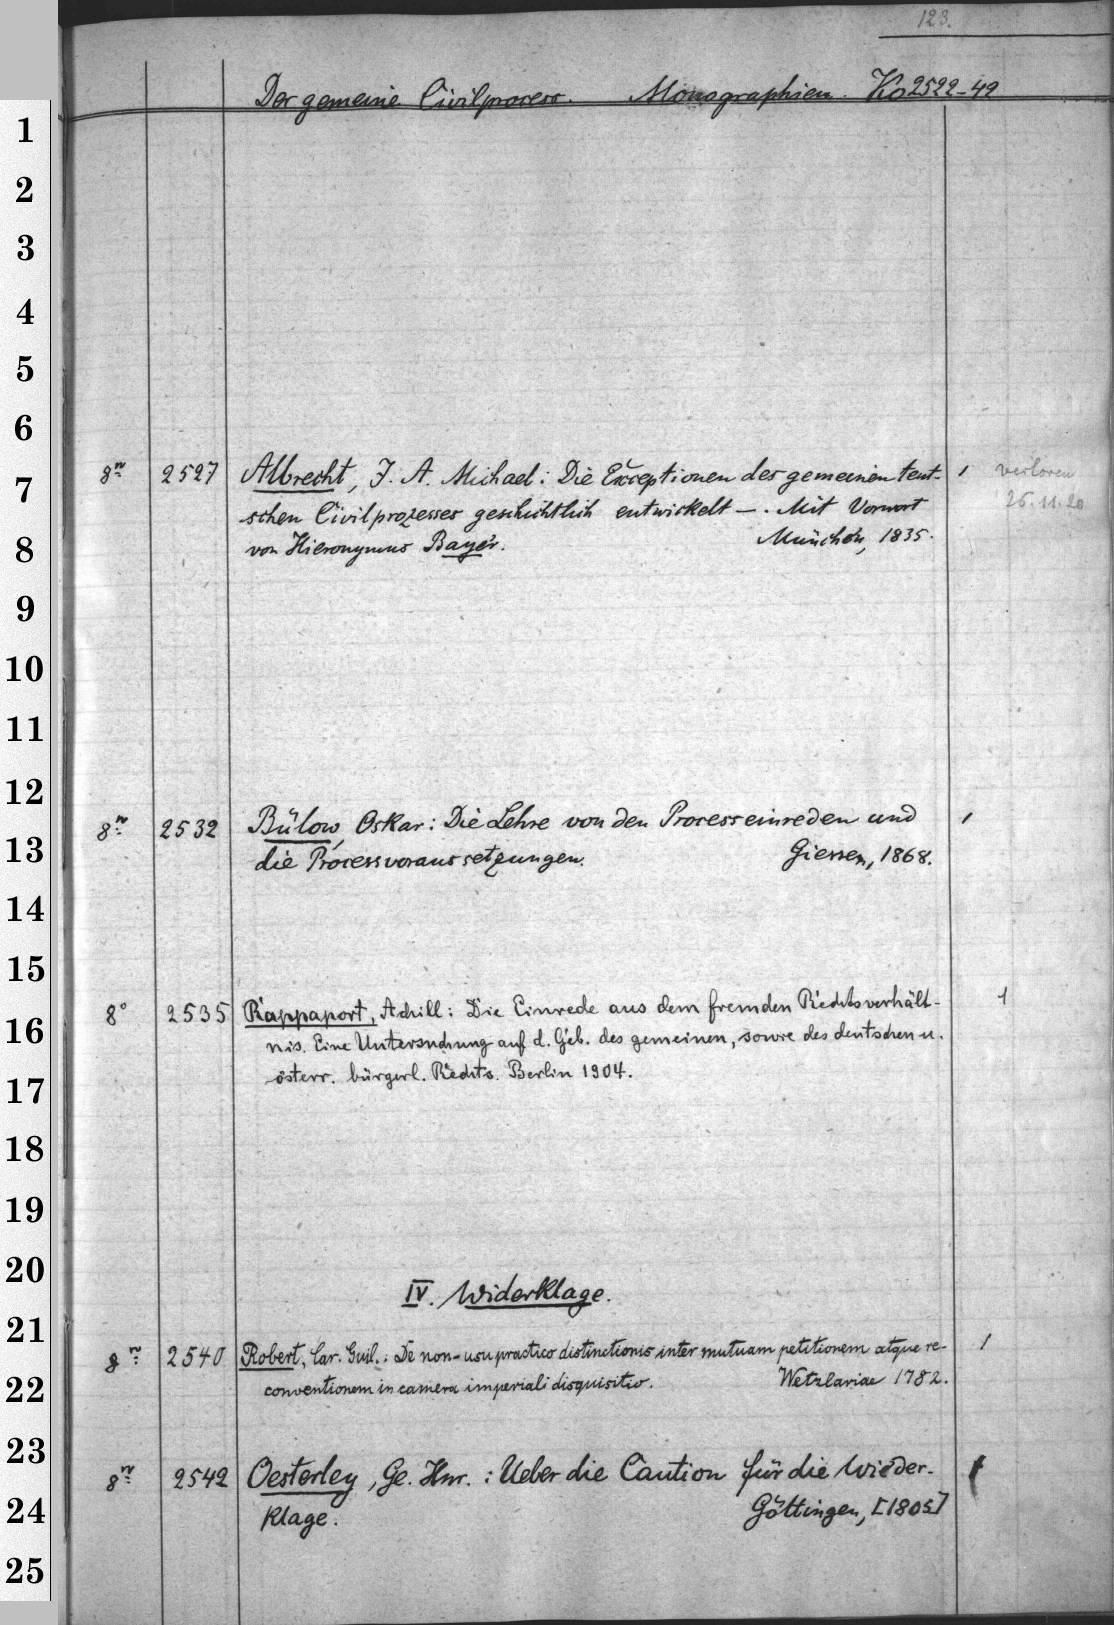 123.
Der gemeine Civilprocess. Monographien. Ko 2522-42
1
2
3
4
5
6
7
8
9
10
11
12
13
14
15
16
17
18
19
20
21
22
23
24
25
8º 2527 Albrecht, J. A. Michael: Die Exceptionen des gemeinen teut-
schen Civilprozesses geschichtlich entwickelt —. Mit Vorwort
von Hieronymus Bayer. München, 1835.
verloren
26.11.20
8º 2532 Bülow, Oskar: Die Lehre von den Processeinreden und
die Processvoraussetzungen. Giessen, 1868.
8º 2535 Rappaport, Achill: Die Einrede aus dem fremden Rechtsverhält-
nis. Eine Untersuchung auf d. Geb. des gemeinen, sowie des deutschen u.
österr. bürgerl. Rechts. Berlin 1904. 1
IV. Widerklage.
8º 2540 Robert, Car. Guil.: De non-usu practico distinctionis inter mutuam petitionem atque re-
conventionem in camera imperiali disquisitio. Wetzlariae 1782.
8º 2542 Oesterley, Ge. Hnr.: Ueber die Caution für die Wieder-
klage. Göttingen, [1805]